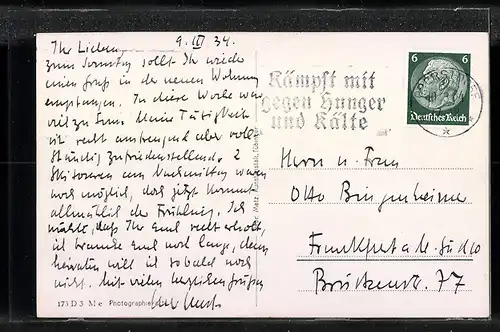 9. III 34.
Ihr Lieben,
zum Sonntag sollt Ihr wieder
einen Gruß in der neuen Wohnung
empfangen. In dieser Woche war
viel zu tun. Meine Tätigkeit
ist recht anstrengend aber voll-
ständig zufriedenstellend. 2
Skitouren am Nachmittag waren
noch möglich, doch jetzt kommt
allmählich der Frühling. Ich
daß Ihr Euch recht erholt,
ich brauche Euch noch lang, denn
heiraten will ich so bald noch
nicht. Mit vielen herzlichen Grüßen
173 D 3 M e Photographie
Kämpft mit
gegen Hunger
und Kälte
6 6
Deutsches Reich
Herrn u. Frau
Otto Bingenheimer
Frankfurt a. M. Süd 10
Brückenstr. 77